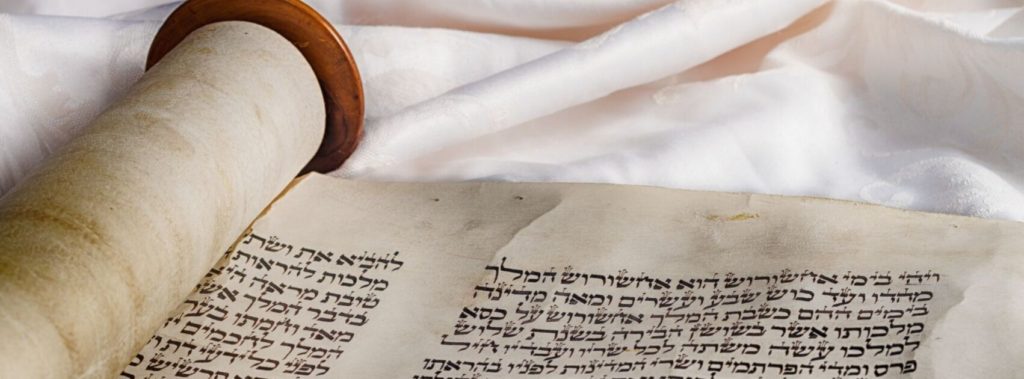 ויהי בימי אחשורוש הוא אחשורוש המלך
מהדו ועד כוש שבע ועשרים ומאה מדינה
בימים ההם כשבת המלך אחשורוש על כסא
מלכותו אשר בשושן הבירה בשנת שלוש
למלכו עשה משתה לכל שריו ועבדיו חיל
פרס ומדי הפרתמים ושרי המדינות לפניו בהראתו
להביא את ושתי
מלכות להראות
טובת מראה היא
בדבר המלך אשר
מאד וחמתו בערה
המלך לחכמים
לפני כל ידעי דת